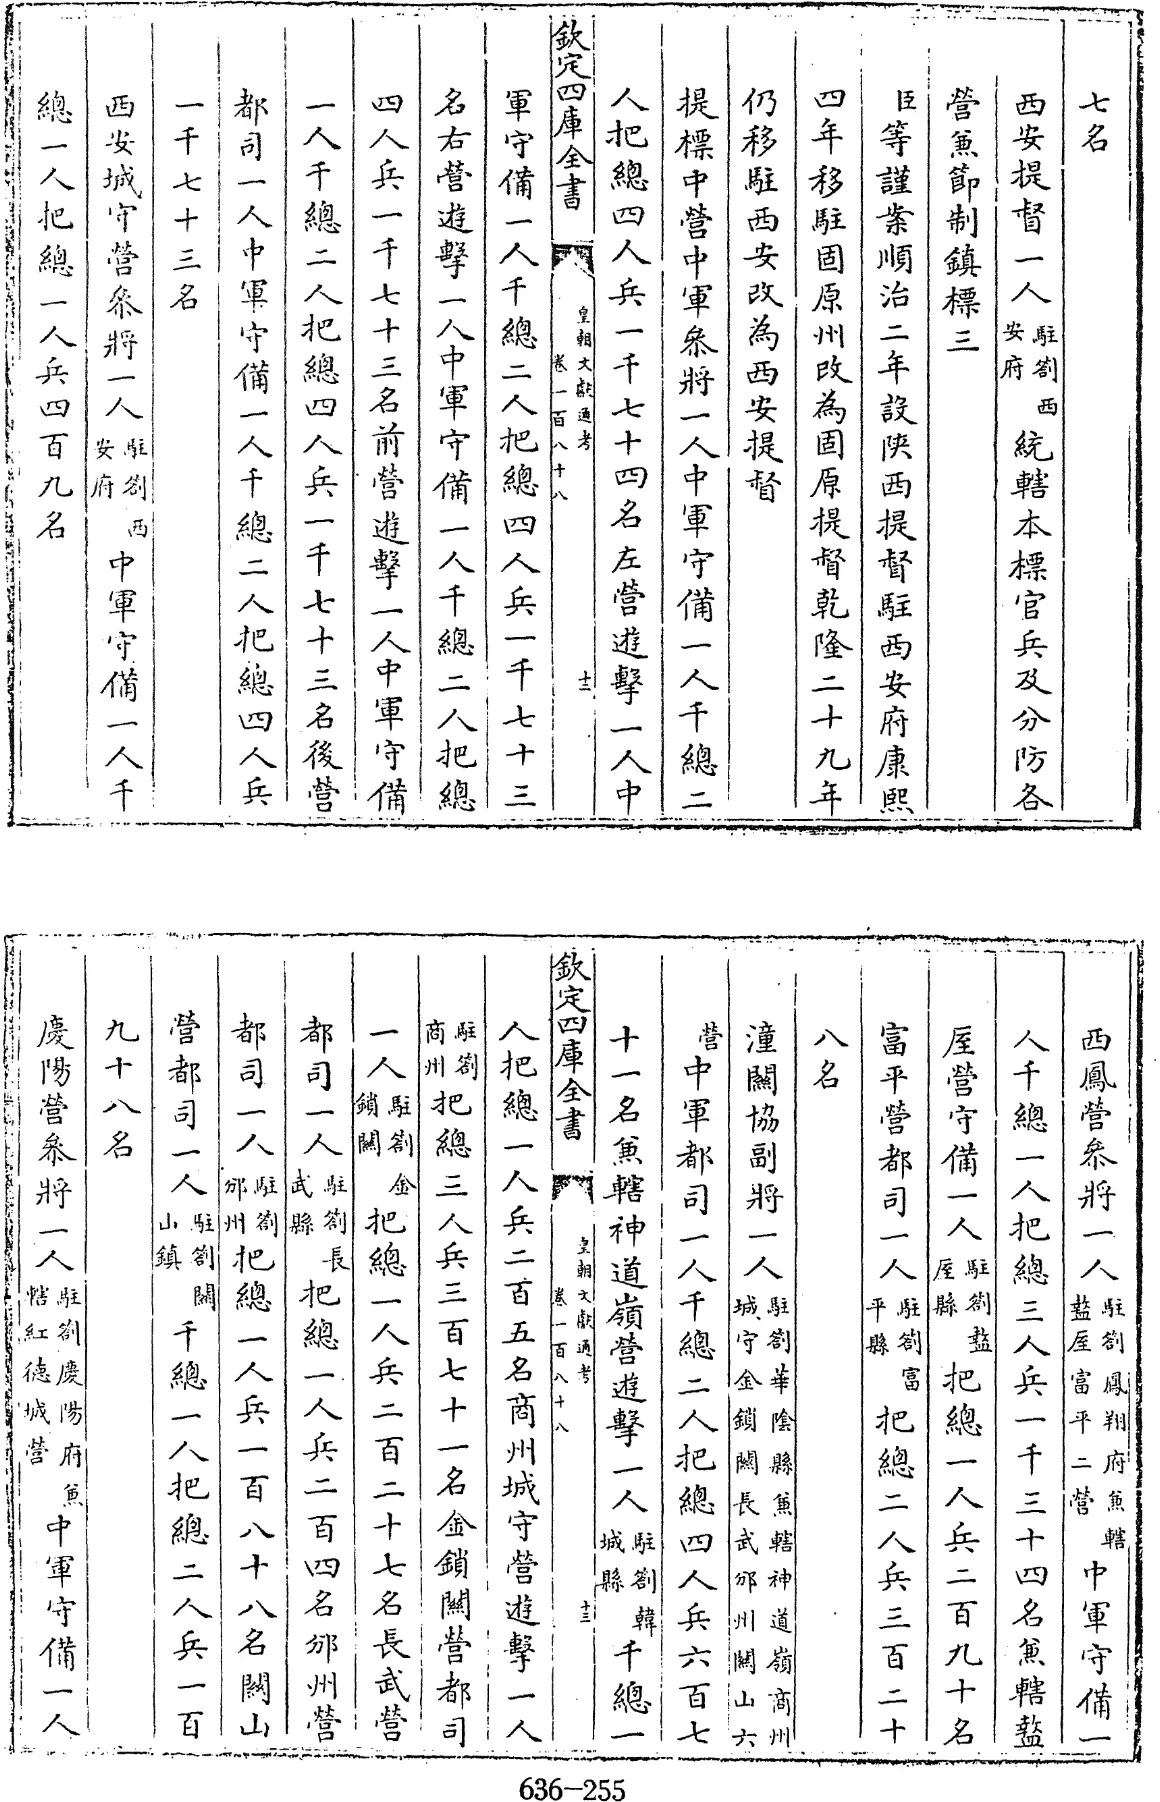 七名
西安提督一人駐劄西安府統轄本標官兵及分防各
營兼節制鎮標三
臣等謹案順治二年設陝西提督駐西安府康熙
四年移駐固原州改為固原提督乾隆二十九年
仍移駐西安改為西安提督
提標中營中軍叅將一人中軍守備一人千總二
人把總四人兵一千七十四名左營遊擊一人中
欽定四庫全書
皇朝文獻通考
卷一百八十八
十二
軍守備一人千總二人把總四人兵一千七十三
名右營遊擊一人中軍守備一人千總二人把總
四人兵一千七十三名前營遊擊一人中軍守備
一人千總二人把總四人兵一千七十三名後營
都司一人中軍守備一人千總二人把總四人兵
一千七十三名
西安城守營叅將一人駐劄西安府中軍守備一人千
總一人把總一人兵四百九名
西鳳營叅將一人駐劄鳳翔府兼轄盩厔富平二營中軍守備一
人千總一人把總三人兵一千三十四名兼轄盩
厔營守備一人駐劄盩厔縣把總一人兵二百九十名
富平營都司一人駐劄富平縣把總二人兵三百二十
八名
潼關協副將一人駐劄華陰縣兼轄神道嶺商州城守金鎖關長武邠州關山六
營中軍都司一人千總二人把總四人兵六百七
十一名兼轄神道嶺營遊擊一人駐劄韓城縣千總一
欽定四庫全書
皇朝文獻通考
卷一百八十八
十三
人把總一人兵二百五名商州城守營遊擊一人
駐劄商州把總三人兵三百七十一名金鎖關營都司
一人駐劄金鎖關把總一人兵二百二十七名長武營
都司一人駐劄長武縣把總一人兵二百四名邠州營
都司一人駐劄邠州把總一人兵一百八十八名關山
營都司一人駐劄關山鎮千總一人把總二人兵一百
九十八名
慶陽營叅將一人駐劄慶陽府兼轄紅德城營中軍守備一人
636-255